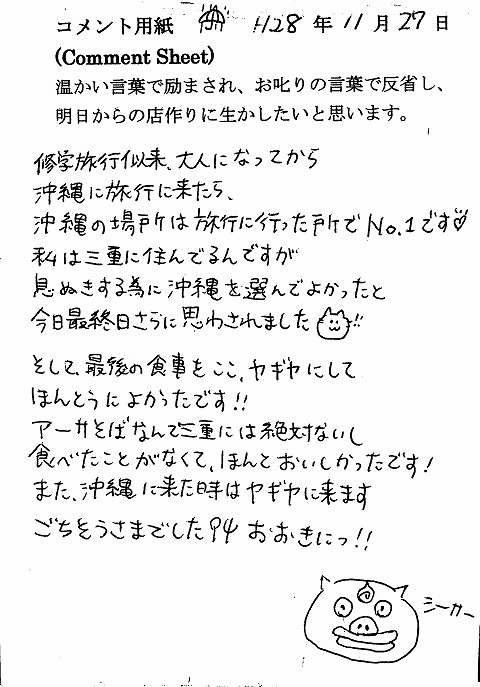 コメント用紙 H28年11月27日
(Comment Sheet)
温かい言葉で励まされ、お叱りの言葉で反省し、
明日からの店作りに生かしたいと思います。
修学旅行似来、大人になってから
沖縄に旅行に来たら、
沖縄の場所は旅行に行った所でNo.1です
私は三重に住んでるんですが
息ぬきする為に沖縄を選んでよかったと
今日最終日さらに思わされました!!
そして、最後の食事をここ、ヤギヤにして
ほんとうによかったです!!
アーサそばなんて三重には絶対ないし
食べたことがなくて、ほんとおいしかったです!
また、沖縄に来た時はヤギヤに来ます
ごちそうさまでした おおきにっ!!
シーサー